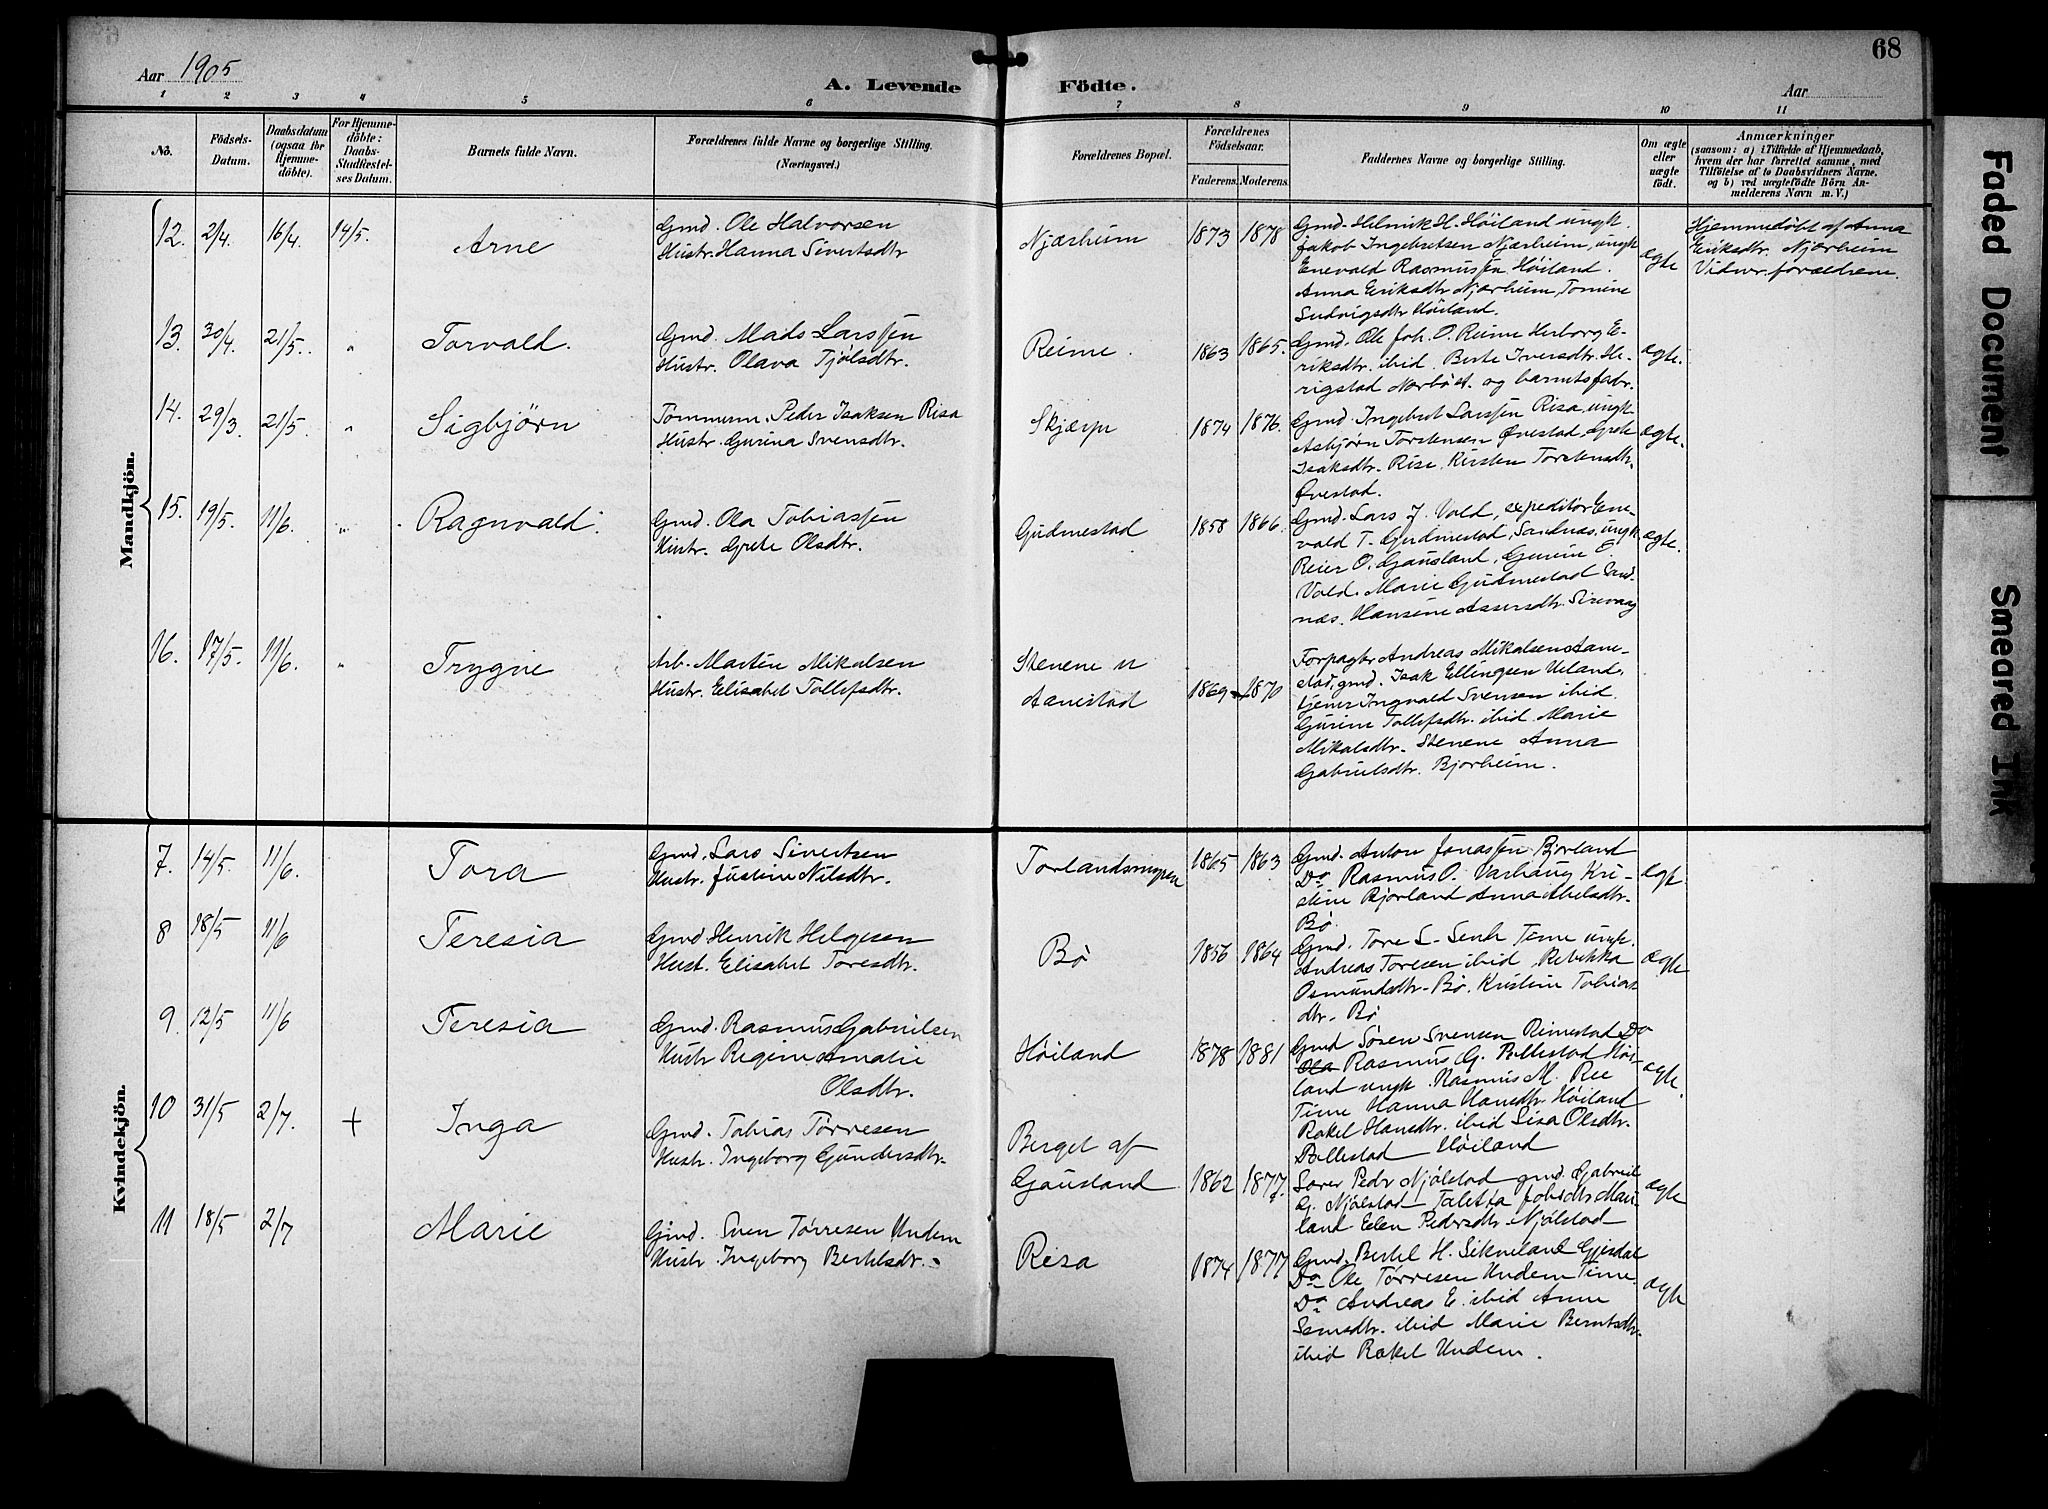 68
Aar 1905
A. Levende Födte.
Aar
1 2 3 4 5 6 7 8 9 10 11
No.
Födsels-Datum.
Daabsdatum (ogsaa for Hjemme-döbte).
For Hjemme-döbte: Daabs-Stadfæstel-ses Datum.
Barnets fulde Navn.
Forældrenes fulde Navne og borgerlige Stilling. (Næringsvei.)
Forældrenes Bopæl.
Forældrenes Födselsaar.
Faderens. Moderens.
Faddernes Navne og borgerlige Stilling.
Om ægte eller uægte födt.
Anmærkninger
(saasom: a) i Tilfælde af Hjemmedaab, hvem der har forrettet samme, med Tilföielse af to Daabsvidners Navne, og b) ved uægtefödte Börn An-melderens Navn m. V.)
Mandkjön.
12. 2/4. 16/4. 14/5. Arne
Gmd. Ole Halvorsen
Hustr. Hanna Sivertsdtr
Njærheim 1873 1878
Gmd. Helmik H. Höiland ungk.
Jakob Ingebretsen Njærheim, ungk
Enevald Rasmussen Höiland.
Anna Eriksdtr Njærheim, Tomine
Ludvigsdtr Höiland.
ægte
Hjemmedöbt af Anna
Eriksdtr. Njærheim
Vidner forældrene.
13. 30/4. 21/5. " Torvald.
Gmd. Mads Larssen
Hustr. Olava Tjölsdtr.
Reime. 1863 1865.
Gmd. Ole Joh. O. Reime Herborg E-
riksdtr. ibid. Berte Iversdtr. He-
rigstad Nærbö st. og barnetsfadr.
ægte.
14. 29/3. 21/5. " Sigbjörn
Tömmerm. Peder Isaksen Risa
Hustr. Gurina Svensdtr.
Skjærpe 1874 1876.
Gmd. Ingebret Larssen Risa, ungk.
Asbjörn Torstensen Övestad, Grete
Isaksdtr. Rise. Kirsten Torstensdtr.
Övestad.
ægte.
15. 19/5. 11/6. " Ragnvald.
Gmd. Ola Tobiassen
Hustr. Grete Olsdtr.
Gudmestad 1858 1866.
Gmd. Lars J. Vold, expeditör Ene-
vald T. Gudmestad, Sandnæs, ungk.
Reier O. Gausland, Gurine E.
Vold. Marie Gudmestad Sand-
næs. Hansine Assersdtr. Sirevaag
ægte.
16. 17/5. 11/6. " Trygve
Arb. Martin Mikalsen
Hustr. Elisabet Tollefsdtr.
Stenene u
Aanestad 1869 1870
Forpagter Andreas Mikalsen Aane-
stad, gmd. Isak Ellingsen Ueland,
tjener Ingvald Svensen ibid.
Gurine Tollefsdtr. ibid Marie
Mikalsdtr. Stenene Anna
Gabrielsdtr. Bjorheim.
Kvindekjön.
7. 14/5. 11/6. Tora
Gmd. Lars Sivertsen
Hustr. Justine Nilsdtr.
Torlandsmyren 1865 1863
Gmd. Anton Jonassen Bjorland
Do Rasmus O. Varhaug Kri-
stine Bjorland Anna Abelsdtr.
Bö.
ægte
8 18/5 11/6 Teresia
Gmd Henrik Helgesen
Hust. Elisabet Toresdtr.
Bö 1856 1864
Gmd. Tore S. Time ungk.
Andreas Toresen ibid. Rebekka
Osmundsdtr. Bö. Kristine Tobias
dtr. Bö
ægte
9. 12/5 11/6 Teresia
Gmd. Rasmus Gabrielsen
Hustr Regine Amalie
Olsdtr.
Höiland 1878 1881
Gmd Sören Svensen Rimestad Do
Ola Rasmus G. Pollestad Höi-
land ungk. Rasmus M. Ree
Time Hanna Hansdtr. Höiland
Rakel Hansdtr. ibid Lisa Olsdtr.
Pollestad Höiland
ægte.
10 31/5 2/7. + Inga
Gmd. Tobias Törresen
Hustr. Ingeborg Gundersdtr.
Berget af
Gausland 1862 1877.
Lærer Pedr Njölstad gmd. Gabriel
G. Njölstad Taletta Jobsdtr Mau-
land Elen Pedersdtr. Njölstad
ægte
11 18/5 2/7 Marie
Gmd. Sven Törresen Undem
Hustr. Ingeborg Bertelsdtr.
Risa 1874 1877
Gmd. Bertel H. Gjesdal
Do Ole Törresen Undem Time.
Do Andreas E. ibid Anne
ibid Marie Berntsdtr.
ibid Rakel Undem.
ægte
Faded Document
Smeared Ink